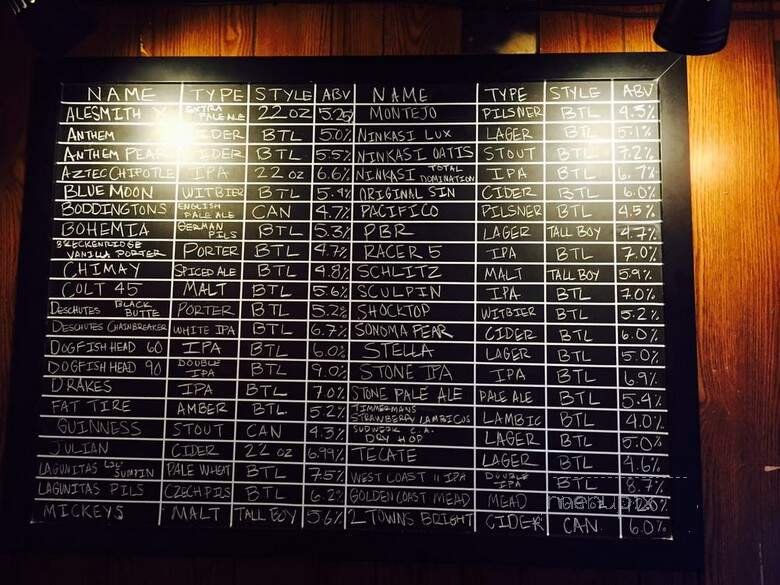 NAME TYPE STYLE ABV NAME TYPE STYLE ABV
ALESMITH X EXTRA PALE ALE 22 OZ 5.25 MONTEJO PILSNER BTL 4.5%
ANTHEM CIDER BTL 5.0% NINKASI LUX LAGER BTL 5.1%
ANTHEM PEAR CIDER BTL 5.5% NINKASI OATIS STOUT BTL 7.2%
AZTEC CHIPOTLE IPA 22 OZ 6.6% NINKASI TOTAL DOMINATION IPA BTL 6.7%
BLUE MOON WITBIER BTL 5.4% ORIGINAL SIN CIDER BTL 6.0%
BODDINGTONS ENGLISH PALE ALE CAN 4.7% PACIFICO PILSNER BTL 4.5%
BOHEMIA GERMAN PILS BTL 5.3% PBR LAGER TALL BOY 4.7%
BRECKENRIDGE VANILLA PORTER PORTER BTL 4.7% RACER 5 IPA BTL 7.0%
CHIMAY SPICED ALE BTL 4.8% SCHLITZ MALT TALL BOY 5.9%
COLT 45 MALT BTL 5.6% SCULPIN IPA BTL 7.0%
DESCHUTES BLACK BUTTE PORTER BTL 5.2% SHOCKTOP WITBIER BTL 5.2%
DESCHUTES CHAINBREAKER WHITE IPA BTL 6.7% SONOMA PEAR CIDER BTL 6.0%
DOGFISH HEAD 60 IPA BTL 6.0% STELLA LAGER BTL 5.0%
DOGFISH HEAD 90 DOUBLE IPA BTL 9.0% STONE IPA IPA BTL 6.9%
DRAKES IPA BTL 7.0% STONE PALE ALE PALE ALE BTL 5.4%
FAT TIRE AMBER BTL. 5.2% TIMMERMANS STRAWBERRY LAMBICUS LAMBIC BTL 4.0%
GUINNESS STOUT CAN 4.3% SUDWERK C.A. DRY HOP LAGER BTL 5.0%
JULIAN CIDER 22 OZ 6.99% TECATE LAGER BTL 4.6%
LAGUNITAS LIL' SUMPIN PALE WHEAT BTL 7.5% WEST COAST IPA DOUBLE IPA BTL 8.7%
LAGUNITAS PILS CZECH PILS BTL 6.2% GOLDEN COAST MEAD MEAD
MICKEYS MALT TALL BOY 5.6% 2 TOWNS BRIGHT CIDER CAN 6.0%